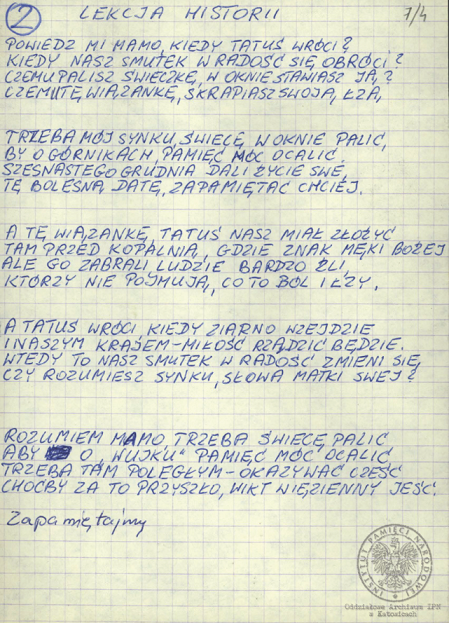 2 LEKCJA HISTORII 7/4
POWIEDZ MI MAMO, KIEDY TATUŚ WRÓCI?
KIEDY NASZ SMUTEK W RADOŚĆ SIĘ OBRÓCI?
CZEMU PALISZ ŚWIECZKĘ, W OKNIE STAWIASZ JĄ,?
CZEMU TĘ WIĄZANKĘ, SKRAPIASZ SWOJĄ, ŁZĄ,
TRZEBA MÓJ SYNKU, ŚWIECĘ, W OKNIE PALIĆ,
BY O GÓRNIKACH, PAMIĘĆ MÓC OCALIĆ
SZESNASTEGO GRUDNIA DALI ŻYCIE SWE,
TĘ BOLESNĄ DATĘ, ZAPAMIĘTAĆ CHCIEJ.
A TĘ WIĄZANKĘ, TATUŚ NASZ MIAŁ ZŁOŻYĆ
TAM PRZED KOPALNIĄ, GDZIE ZNAK MĘKI BOŻEJ
ALE GO ZABRALI, LUDZIE BARDZO ŹLI,
KTÓRZY NIE POJMUJĄ, CO TO BÓL I ŁZY.
A TATUŚ WRÓCI KIEDY ZIARNO WZEJDZIE
I NASZYM KRAJEM-MIŁOŚĆ RZĄDZIĆ BĘDZIE.
WTEDY TO NASZ SMUTEK W RADOŚĆ ZMIENI SIĘ,
CZY ROZUMIESZ SYNKU, SŁOWA MATKI SWEJ?
ROZUMIEM MAMO, TRZEBA ŚWIECĘ PALIĆ
ABY O „WUJKU" PAMIĘĆ MÓC OCALIĆ,
TRZEBA TAM POLEGŁYM-OKAZYWAĆ CZEŚĆ
CHOĆBY ZA TO PRZYSZŁO, WIKT WIĘZIENNY JEŚĆ.
Zapamiętajmy
INSTYTUT PAMIĘCI NARODOWEJ
Oddziałowe Archiwum IPN
w Katowicach